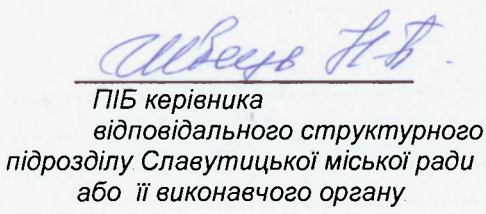 Швець Н.В.
ПІБ керівника
відповідального структурного
підрозділу Славутицької міської ради
або її виконавчого органу